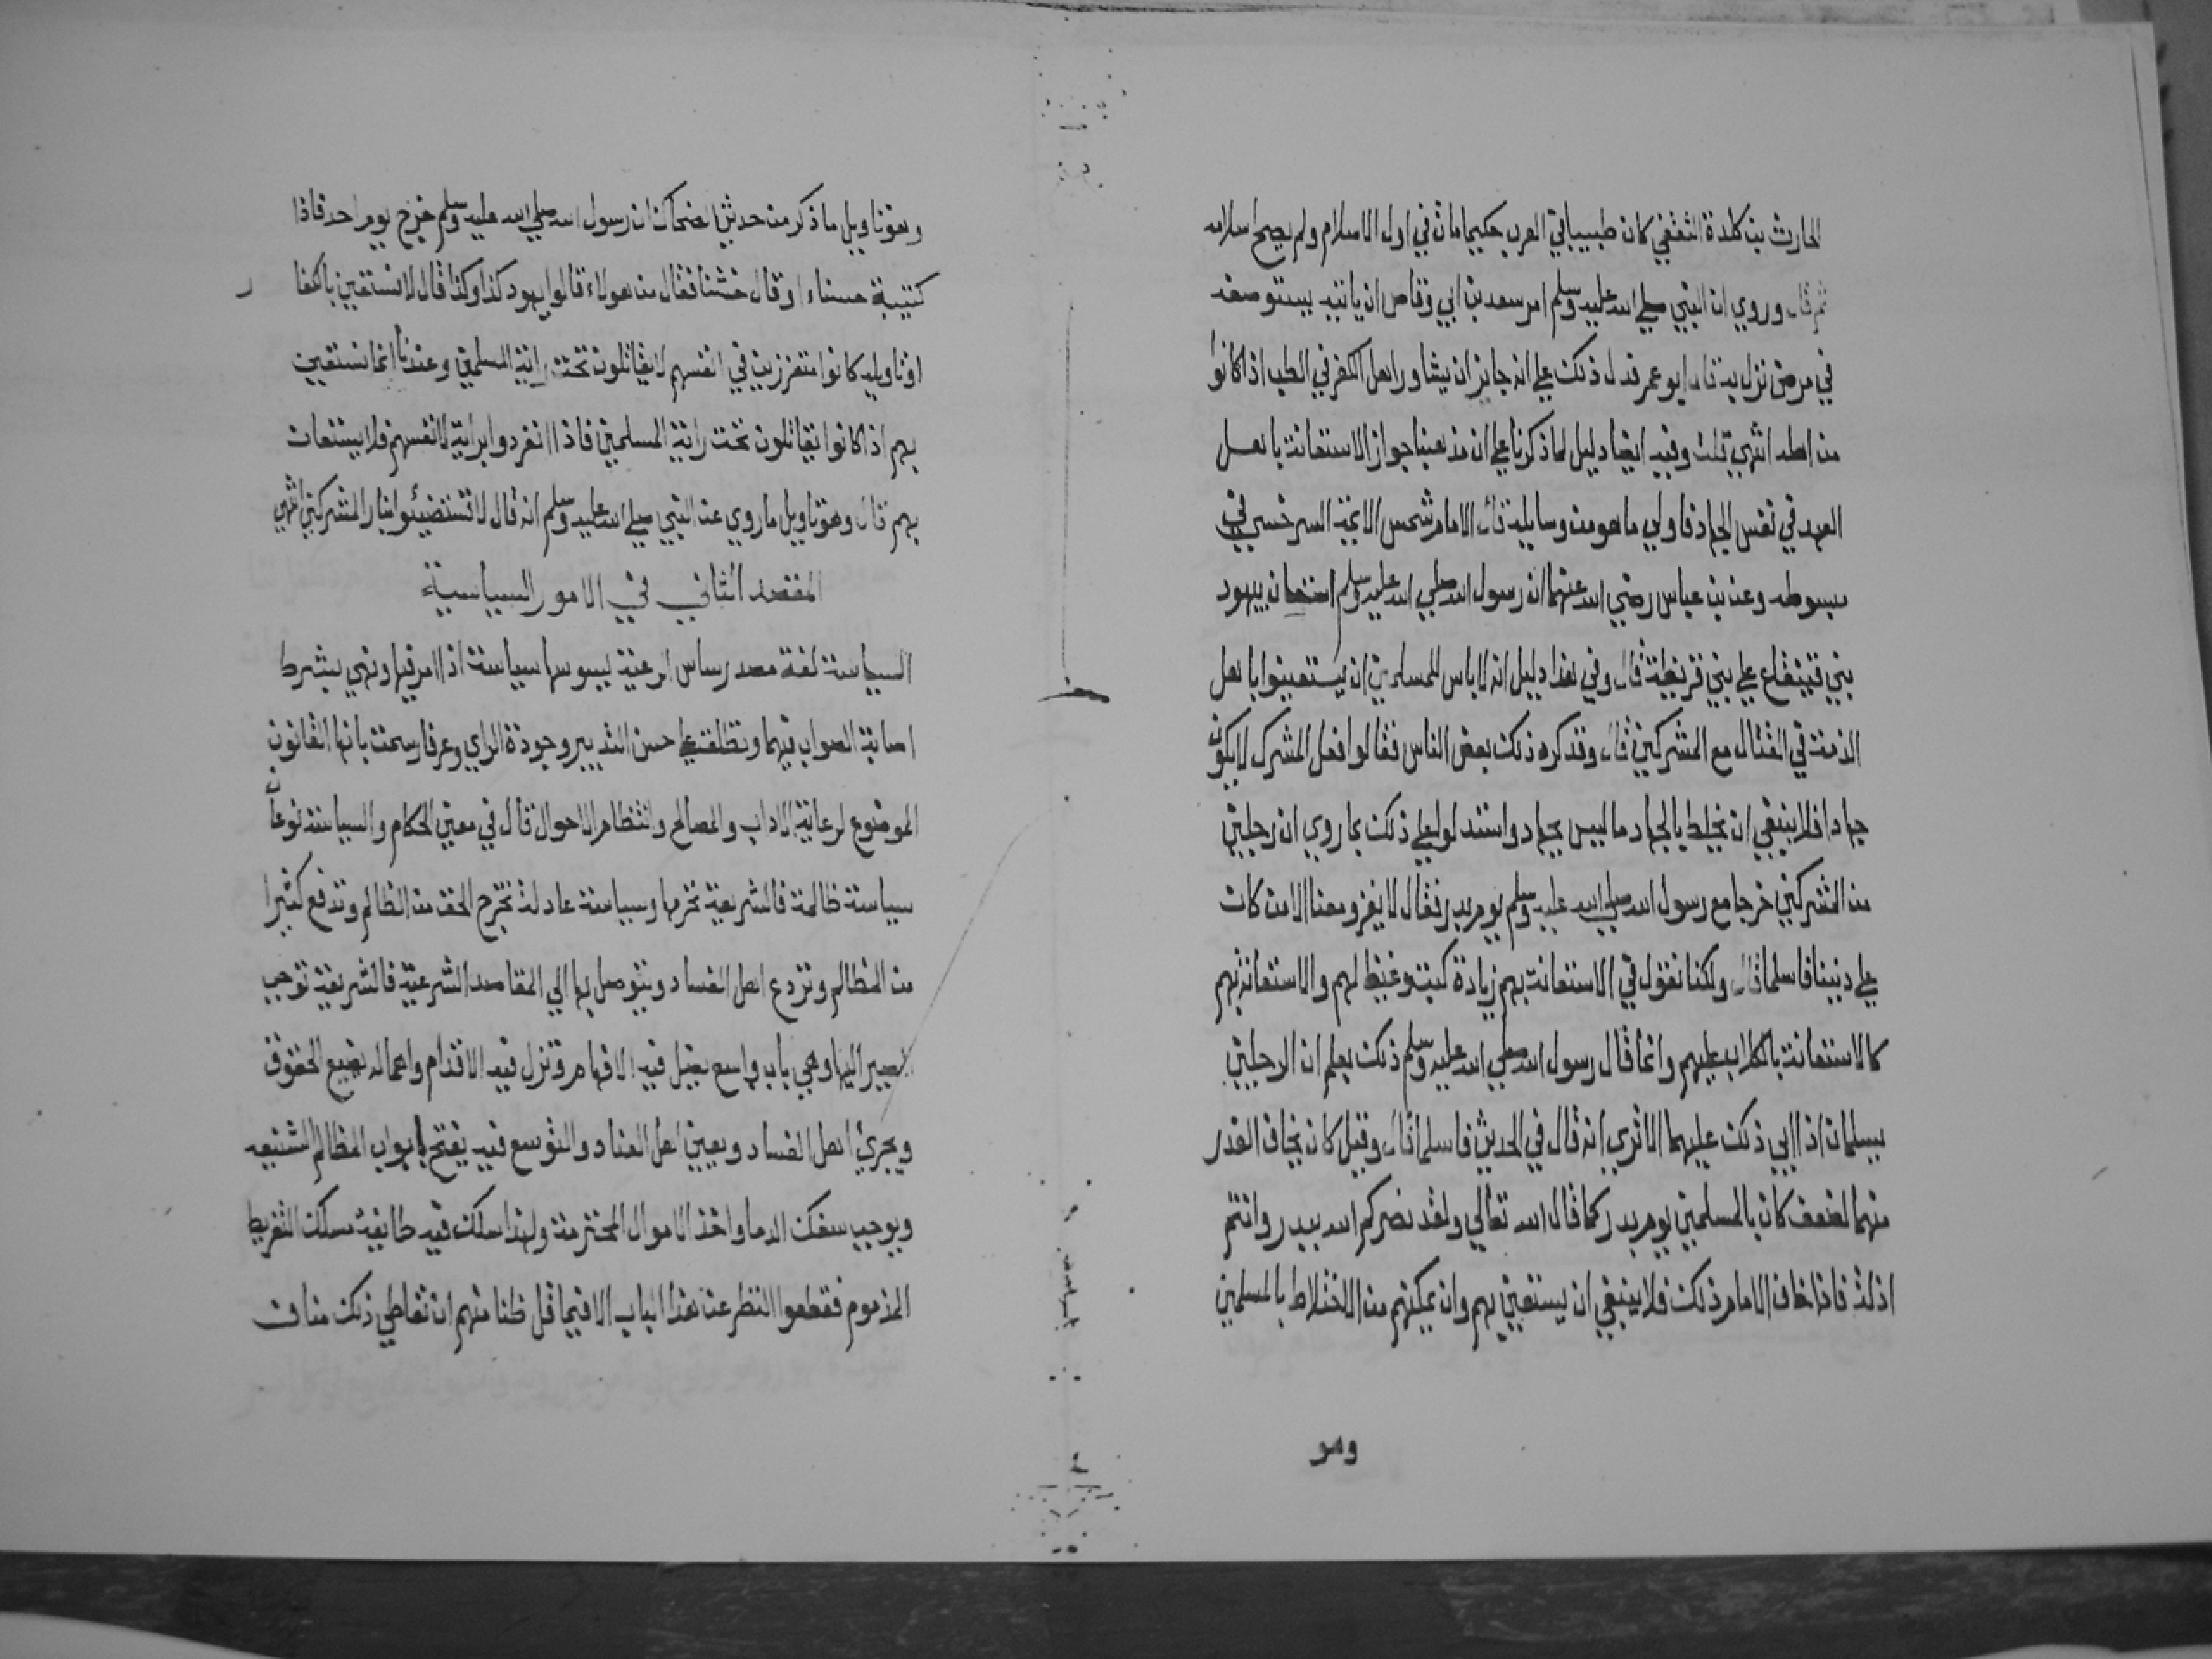 الحارث بن كلدة الثقفي كان طبيبا في العرب حكيما مات في اول الاسلام ولم يصح اسلامه
ثم قال وروي ان النبي صلى الله عليه وسلم امر سعد بن ابي وقاص ان ياتيه يستوصفه
في مرض نزل به قال ابو عمر فدل ذلك على انه جايز ان يشاور اهل الكفر في الطب اذا كانوا
من اهله انتهى قلت وفيه ايضا دليل لما ذكرنا على ان مذهبنا جواز الاستعانة باهل
العهد في نفس الجهاد فاولى ما هو من وسايله قال الامام شمس الايمة السرخسي في
مبسوطه وعن بن عباس رضي الله عنهما ان رسول الله صلى الله عليه وسلم استعان بيهود
بني قينقاع على بني قريظة قال وفي هذا دليل انه لاباس للمسلمين ان يستعينوا باهل
الذمة في القتال مع المشركين قال وقد كره ذلك بعض الناس فقالوا فعل المشرك لا يكون
جهادا فلا ينبغي ان يخلط بالجهاد ما ليس بجهاد واستدلوا على ذلك بما روي ان رجلين
من المشركين خرجا مع رسول الله صلى الله عليه وسلم يوم بدر فقال لا يغزو معنا الا من كان
على ديننا فاسلما قال ولكنا نقول في الاستعانة بهم زيادة كبت وغيظ لهم والاستعانة بهم
كالاستعانة بالكلاب عليهم وانما قال رسول الله صلى الله عليه وسلم ذلك يعلم ان الرجلين
يسلمان اذا ابى ذلك عليهما الا ترى انه قال في الحديث فاسلما قال وقيل كان يخاف الغدر
منهما لضعف كان بالمسلمين يوم بدر كما قال الله تعالى ولقد نصركم الله ببدر وانتم
اذلة فاذا خاف الامام ذلك فلا ينبغي ان يستعين بهم وان يمكنهم من الاختلاط بالمسلمين
وهو
وهو تاويل ما ذكر من حديث الضحاك ان رسول الله صلى الله عليه وسلم خرج يوم احد فاذا
كتيبة حسناء او قال خشنا فقال من هولاء قالوا يهود كذا وكذا قال لا نستعين بالكفار
او تاويله كانوا متعززين في انفسهم لا يقاتلون تحت راية المسلمين وعندنا انما نستعين
بهم اذا كانوا يقاتلون تحت راية المسلمين فاذا انفردوا براية لانفسهم فلا يستعان
بهم قال وهو تاويل ما روي عن النبي صلى الله عليه وسلم انه قال لا تستضيئوا بنار المشركين انتهى
المقصد الثاني في الامور السياسية
السياسة لغة مصدر ساس الرعية يسوسها سياسة اذا امر فيها ونهى بشرط
اصابة الصواب فيهما وتطلق على حسن التدبير وجودة الراي وعرفا رسمت بانها القانون
الموضوع لرعاية الاداب والمصالح وانتظام الاحوال قال في معين الحكام والسياسة نوعان
سياسة ظالمة فالشريعة تحرمها وسياسة عادلة تخرج الحق من الظالم وتدفع كثيرا
من المظالم وتردع اهل الفساد ويتوصل بها الى المقاصد الشرعية فالشريعة توجب
المصير اليها وهي باب واسع تضل فيه الافهام وتزل فيه الاقدام واهماله يضيع الحقوق
ويجرئ اهل الفساد ويعين اهل العناد والتوسع فيه يفتح ابواب المظالم الشنيعه
ويوجب سفك الدما واخذ الاموال المحترمة ولهذا سلكت فيه طايفة مسلك التفريط
المذموم فقطعوا النظر عن هذا الباب الا فيما قل ظنا منهم ان تعاطي ذلك مناف